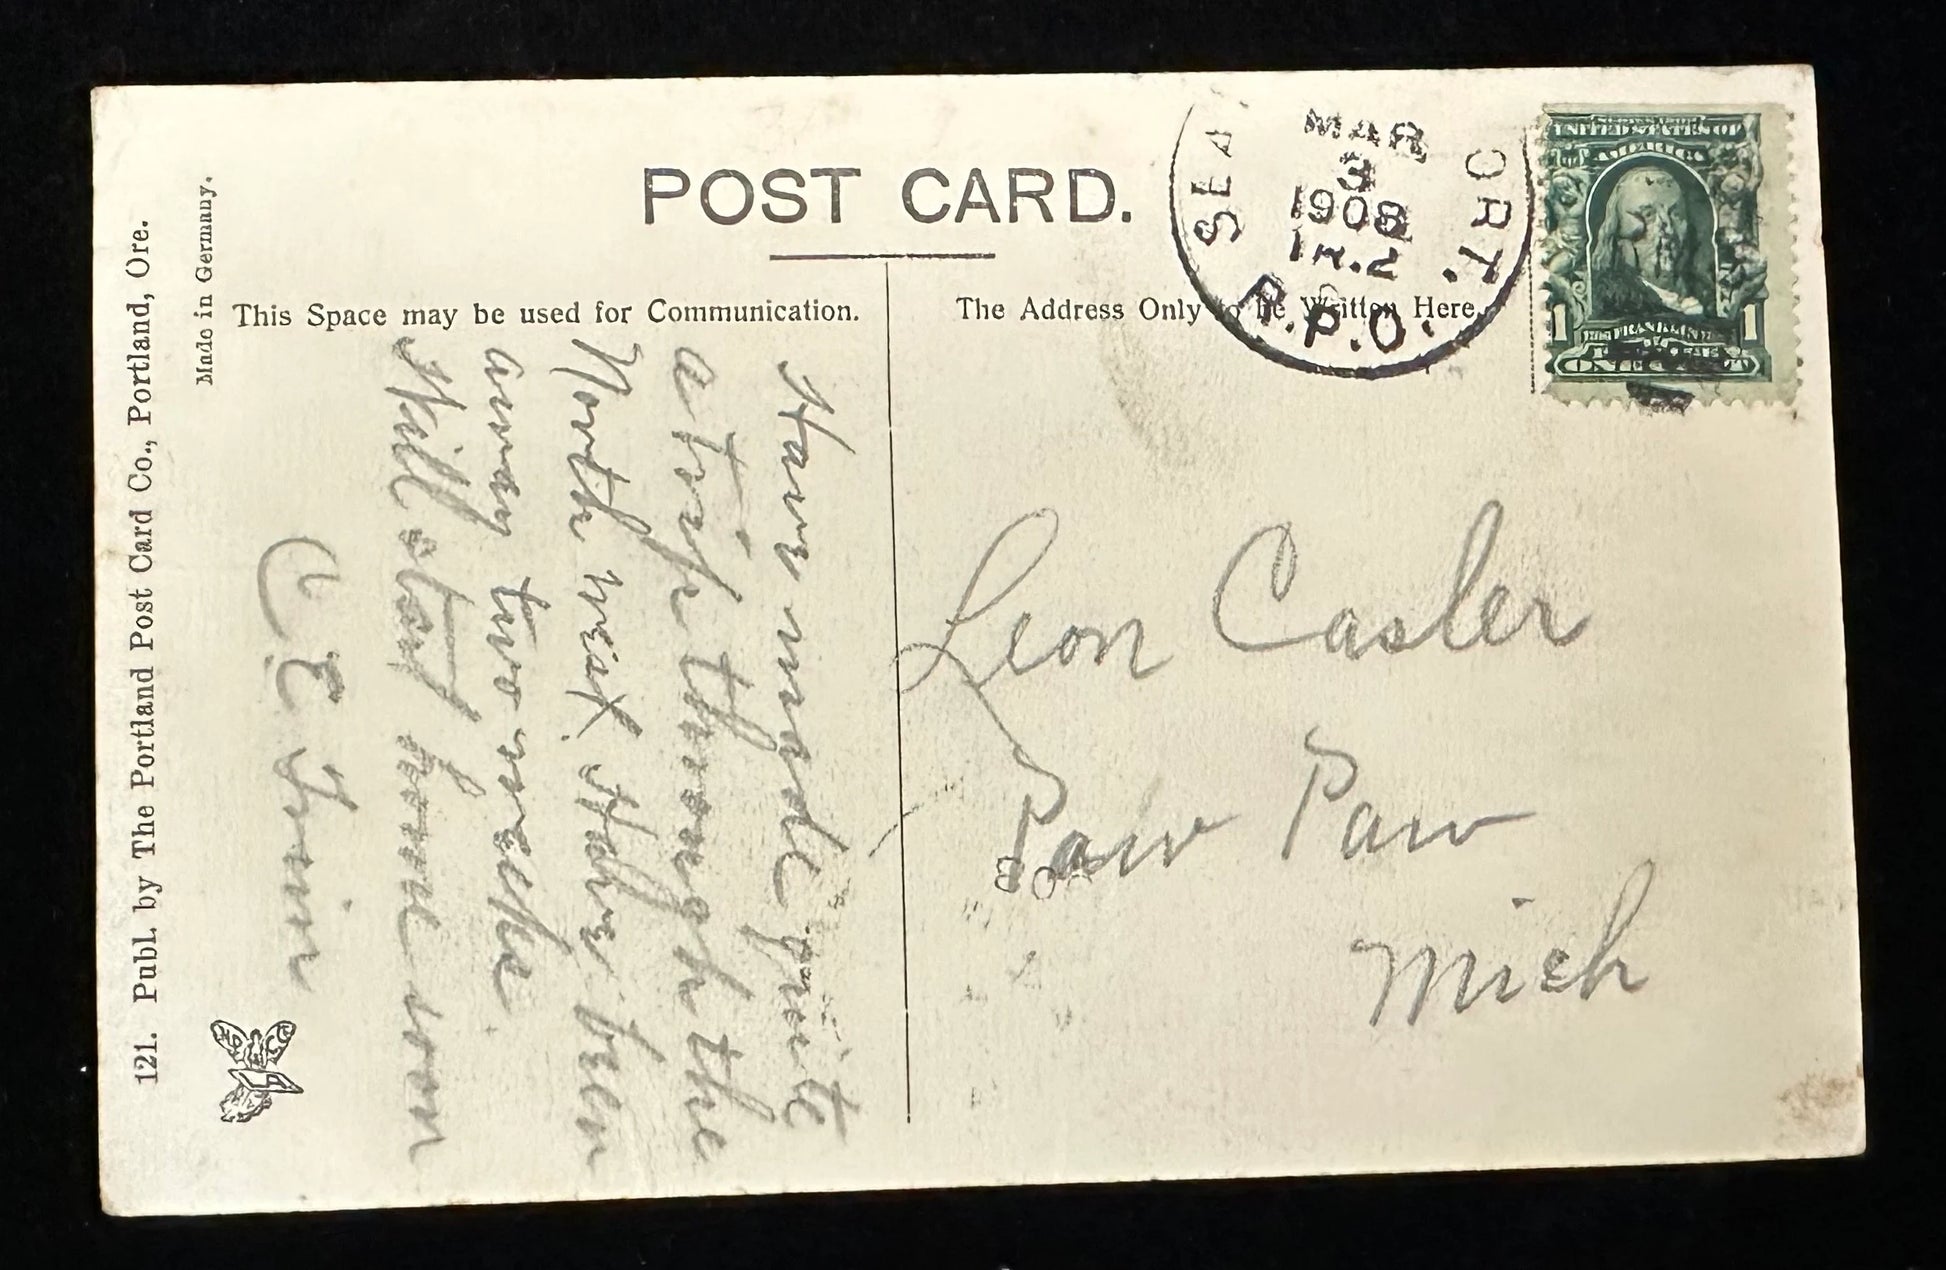 121. Publ. by The Portland Post Card Co., Portland, Ore.
Made in Germany.
POST CARD.
This Space may be used for Communication.
The Address Only to be Written Here.
SEA
ORT.
MAR
3
1908
TR.2
R.P.O.
UNITED STATES OF
AMERICA
1 FRANKLIN 1
ONE CENT
Have made quite
a trip through the
North west Have been
away two weeks
Will start home soon
C E
Leon Casler
Paw Paw
Mich